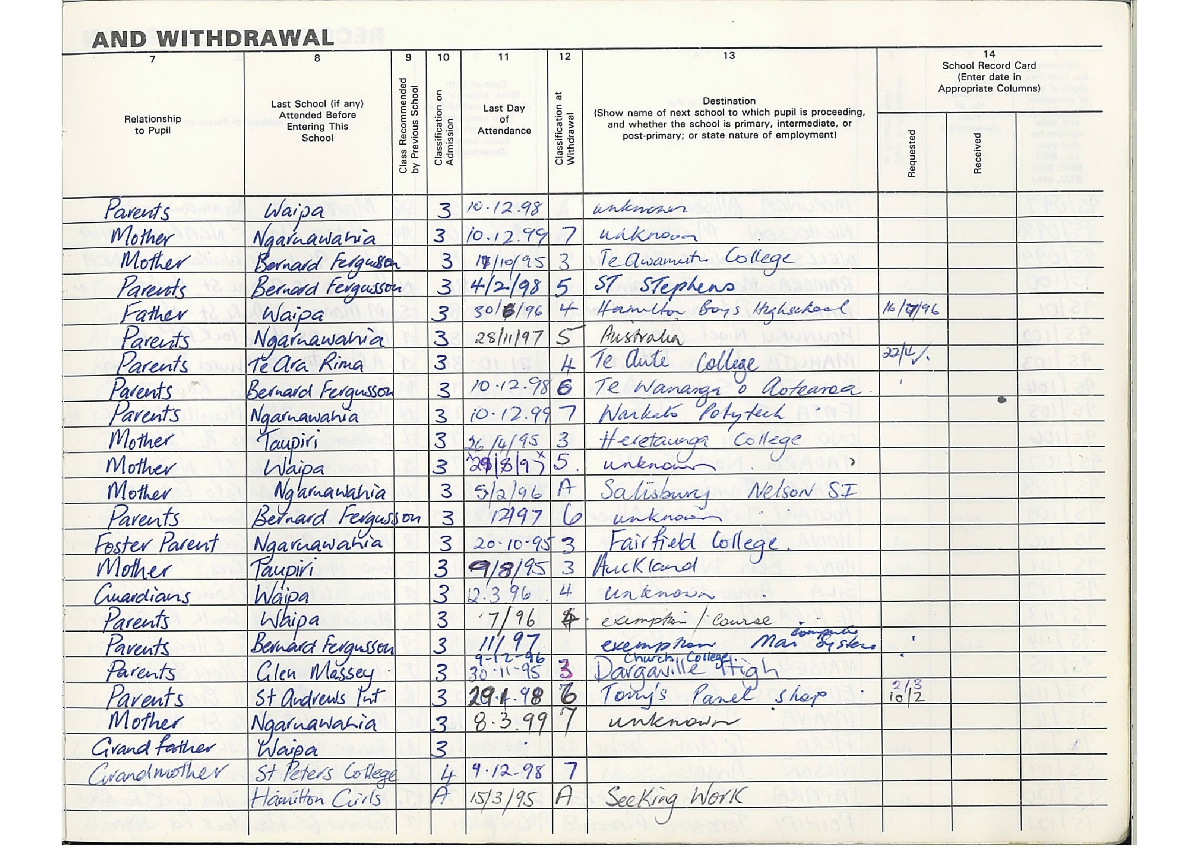 AND WITHDRAWAL
7 8 9 10 11 12 13 14
Relationship to Pupil
Last School (if any) Attended Before Entering This School
Class Recommended by Previous School
Classification on Admission
Last Day of Attendance
Classification at Withdrawal
Destination
(Show name of next school to which pupil is proceeding, and whether the school is primary, intermediate, or post-primary; or state nature of employment)
School Record Card (Enter date in Appropriate Columns)
Requested
Received
Parents Waipa 3 10.12.98 unknown
Mother Ngaruawahia 3 10.12.99 7 unknown
Mother Bernard Fergusson 3 /10/95 3 Te Awamutu College
Parents Bernard Fergusson 3 4/2/98 5 ST Stephens
Father Waipa 3 30/ /96 4 Hamilton Boys Highschool 16/ /96
Parents Ngaruawahia 3 28/11/97 5 Australia
Parents Te Ara Rima 3 4 Te Aute College 22/4/
Parents Bernard Fergusson 3 10.12.98 6 Te Wananga o Aotearoa
Parents Ngaruawahia 3 10.12.99 7 Waikato Polytech
Mother Taupiri 3 26/4/95 3 Heretaunga College
Mother Waipa 3 /8/97 5 unknown
Mother Ngaruawahia 3 5/2/96 A Salisbury Nelson SI
Parents Bernard Fergusson 3 6 unknown
Foster Parent Ngaruawahia 3 20.10.95 3 Fairfield College
Mother Taupiri 3 9/8/95 3 Auckland
Guardians Waipa 3 12.3.96 4 unknown
Parents Waipa 3 7/96 exemption / course
Parents Bernard Fergusson 3 11/97 exemption computer Systems
9-12-96 Church College
Parents Glen Massey 3 30.11.95 3 Dargaville High
Parents St Andrews Put 3 98 6 Tony's Panel shop 2/3 10/2
Mother Ngaruawahia 3 8.3.99 7 unknown
Grand father Waipa 3
Grandmother St Peters College 4 9.12.98 7
Hamilton Girls A 15/3/95 A Seeking Work